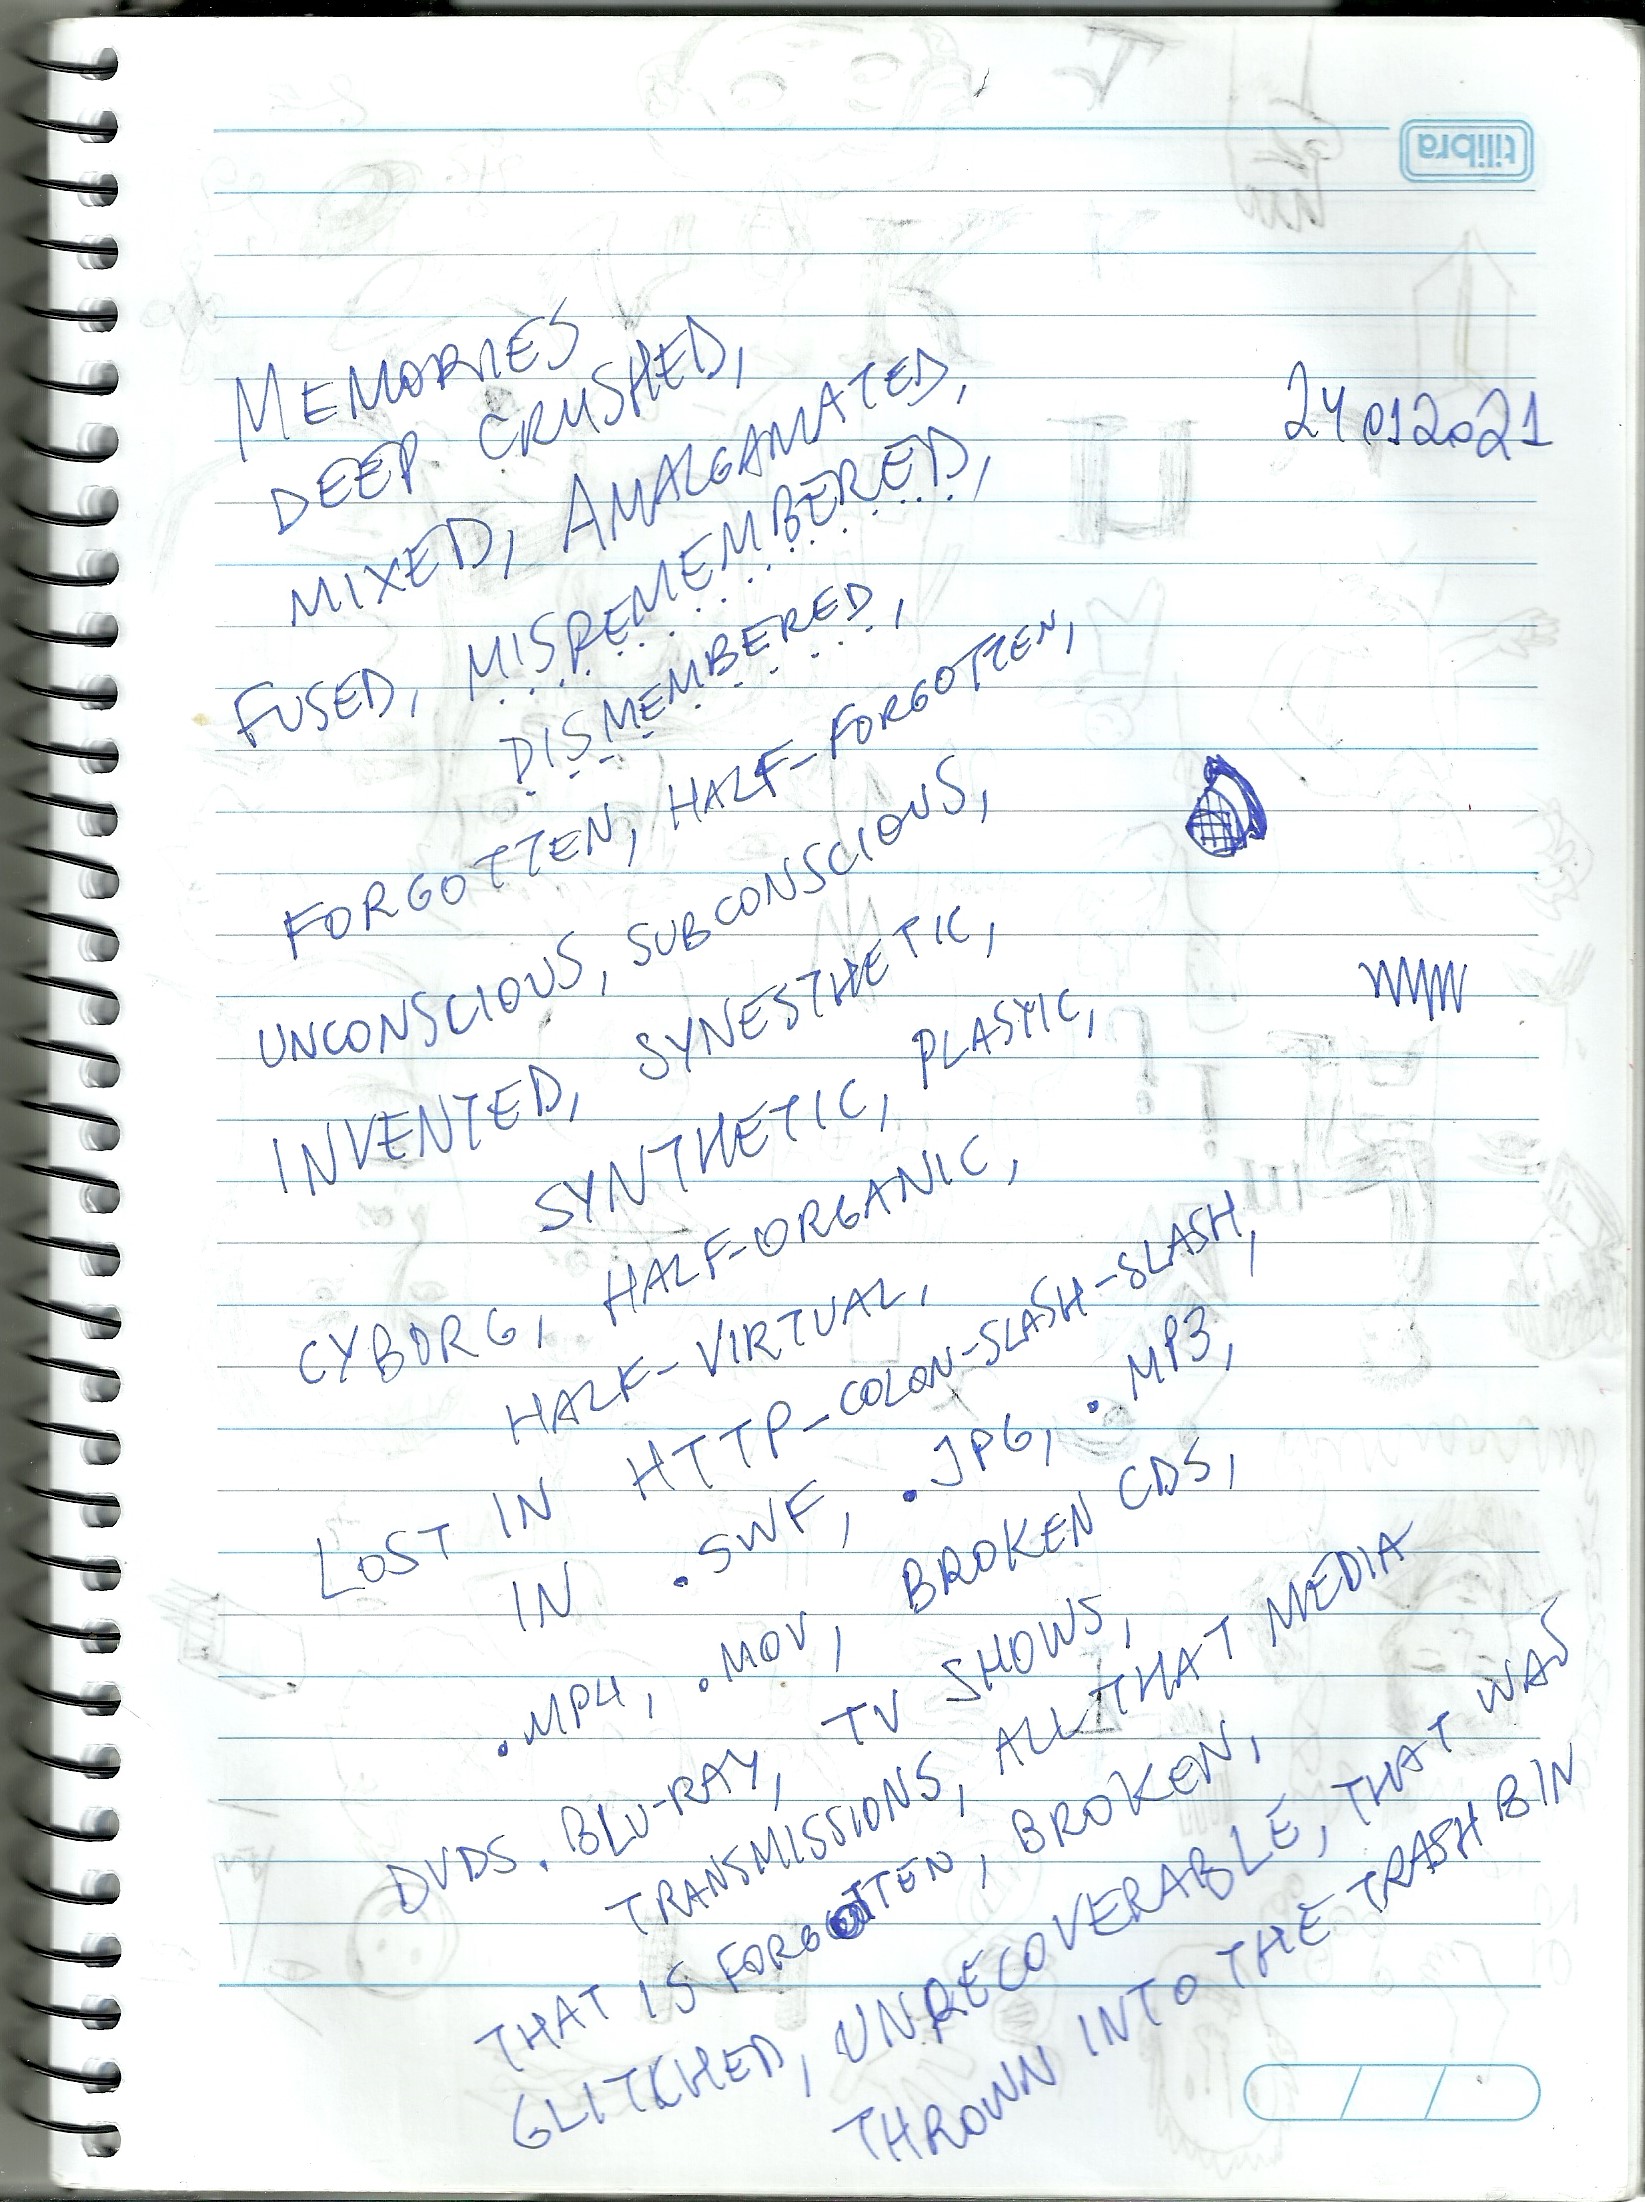 tilibra
24012021
MEMORIES
DEEP CRUSHED,
MIXED, AMALGAMATED,
FUSED, MISREMEMBERED,
DISMEMBERED,
FORGOTTEN, HALF-FORGOTTEN,
UNCONSCIOUS, SUBCONSCIOUS,
INVENTED, SYNESTHETIC,
SYNTHETIC, PLASTIC,
CYBORG, HALF-ORGANIC,
HALF-VIRTUAL,
LOST IN HTTP-COLON-SLASH-SLASH,
IN .SWF, .JPG, .MP3,
.MP4, .MOV, BROKEN CDS,
DVDS. BLU-RAY, TV SHOWS,
TRANSMISSIONS, ALL THAT MEDIA
THAT IS FORGOTTEN, BROKEN,
GLITCHED, UNRECOVERABLE, THAT WAS
THROWN INTO THE TRASH BIN